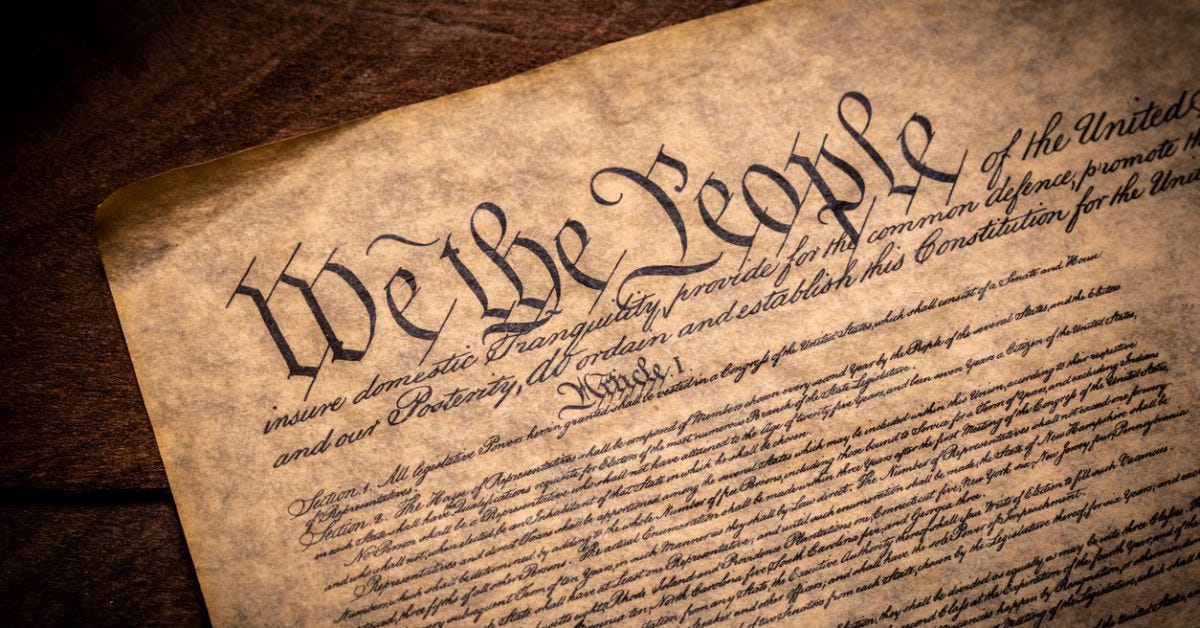 We the People of the United
insure domestic Tranquility, provide for the common defence, promote
and our Posterity, do ordain and establish this Constitution for the
Article I.
Section 1. All legislative Powers herein granted shall be vested in a Congress of the United States, which shall consist of a Senate and House
of Representatives.
Section 2. The House of Representatives shall be composed of Members chosen every second Year by the People of the several States, and the Electors
in each State shall have Qualifications requisite for Electors of the most numerous Branch of the State Legislature.
No Person shall be a Representative who shall not have attained to the Age of twenty five Years, and been seven Years a Citizen of the United States,
and who shall not, when elected, be an Inhabitant of that State in which he shall be chosen.
Representatives and direct Taxes shall be apportioned among the several States which may be included within this Union, according to their respective
Numbers, which shall be determined by adding to the whole Number of free Persons, including those bound to Service for a Term of Years, and excluding Indians
three fifths of all other Persons. The actual Enumeration shall be made within three Years after the first Meeting of the Congress of the United States,
every subsequent Term of ten Years, in such Manner as they shall by Law direct. The Number of Representatives shall not exceed one for every
State shall have at Least one Representative; and until such enumeration shall be made, the State of New Hampshire shall be
eight, Rhode Island and Providence Plantations one, Connecticut five, New York six, New Jersey four, Pennsylvania
North Carolina five, South Carolina five, and Georgia three.
from any State, the Executive Authority thereof shall issue Writs of Election to fill such Vacancies.
Speaker and other Officers; and shall have the sole Power of Impeachment.
two Senators from each State, chosen by the Legislature thereof, for six Years; and
Election, they shall be divided as equally as may be into three Classes.